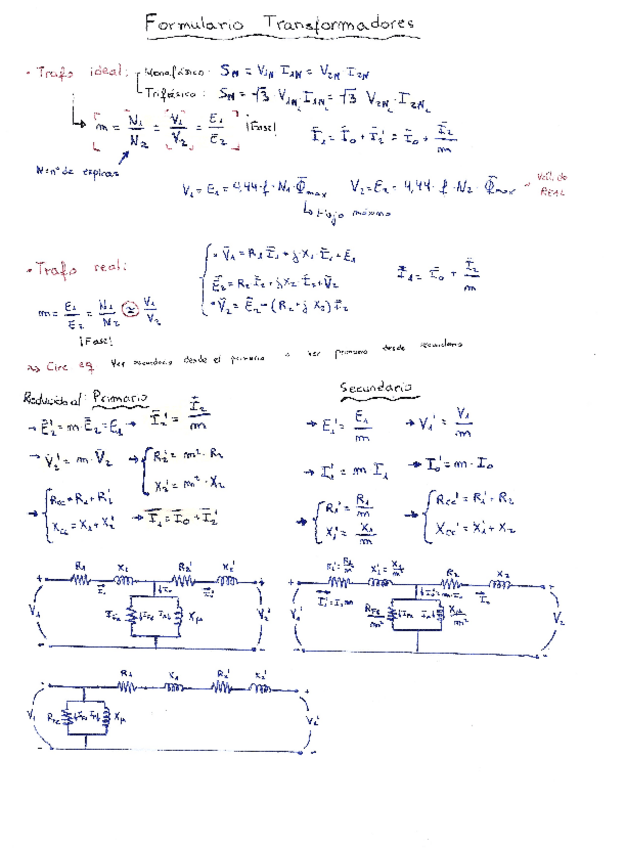 Formulario Transformadores
• Trafo ideal: Monofásico: S_N = V_1N I_1N = V_2N I_2N
Trifásico: S_N = √3 V_1N_L I_1N_L = √3 V_2N_L · I_2N_L
m = N1/N2 = V1/V2 = E1/E2 ¡Fase! Ī1 = Ī0 + Ī2' = Ī0 + Ī2/m
N = nº de espiras
V1 = E1 = 4,44 · f · N1 · Φ̄max V2 = E2 = 4,44 · f · N2 · Φ̄max
↳ flujo máximo
REAL
• Trafo real:
• V̄1 = R1 Ī1 + j X1 Ī1 + E1
Ē2 = R2 Ī2 + j X2 Ī2 + V̄2
• V̄2 = Ē2 - (R2 + j X2) Ī2
Ī1 = Ī0 + Ī2/m
m = E1/E2 = N1/N2 ≅ V1/V2
¡Fase!
Circ eq Ver secundario desde el primario o Ver primario desde secundario
Reducido al: Primario
→ Ē2' = m · Ē2 = E1 → Ī2' = Ī2/m
→ V̄2' = m · V̄2 → R2' = m² · R2
X2' = m² · X2
→ Rcc = R1 + R2'
Xcc = X1 + X2'
→ Ī1 = Ī0 + Ī2'
Secundario
→ E1' = E1/m → V1' = V1/m
→ I1' = m I1 → I0' = m · I0
→ R1' = R1/m
X1' = X1/m
→ Rcc' = R1' + R2
Xcc' = X1' + X2
R1 X1 R2' X2'
V1 I1 I2' V2'
I_Fe Xμ
R1' = R1/m X1' = X1/m R2 X2
V1' I1' = I1 m I2 V2
R_Fe/m² Xμ/m²
R1 X1 R2' X2'
V1 R_Fe I_Fe Iμ Xμ V2'